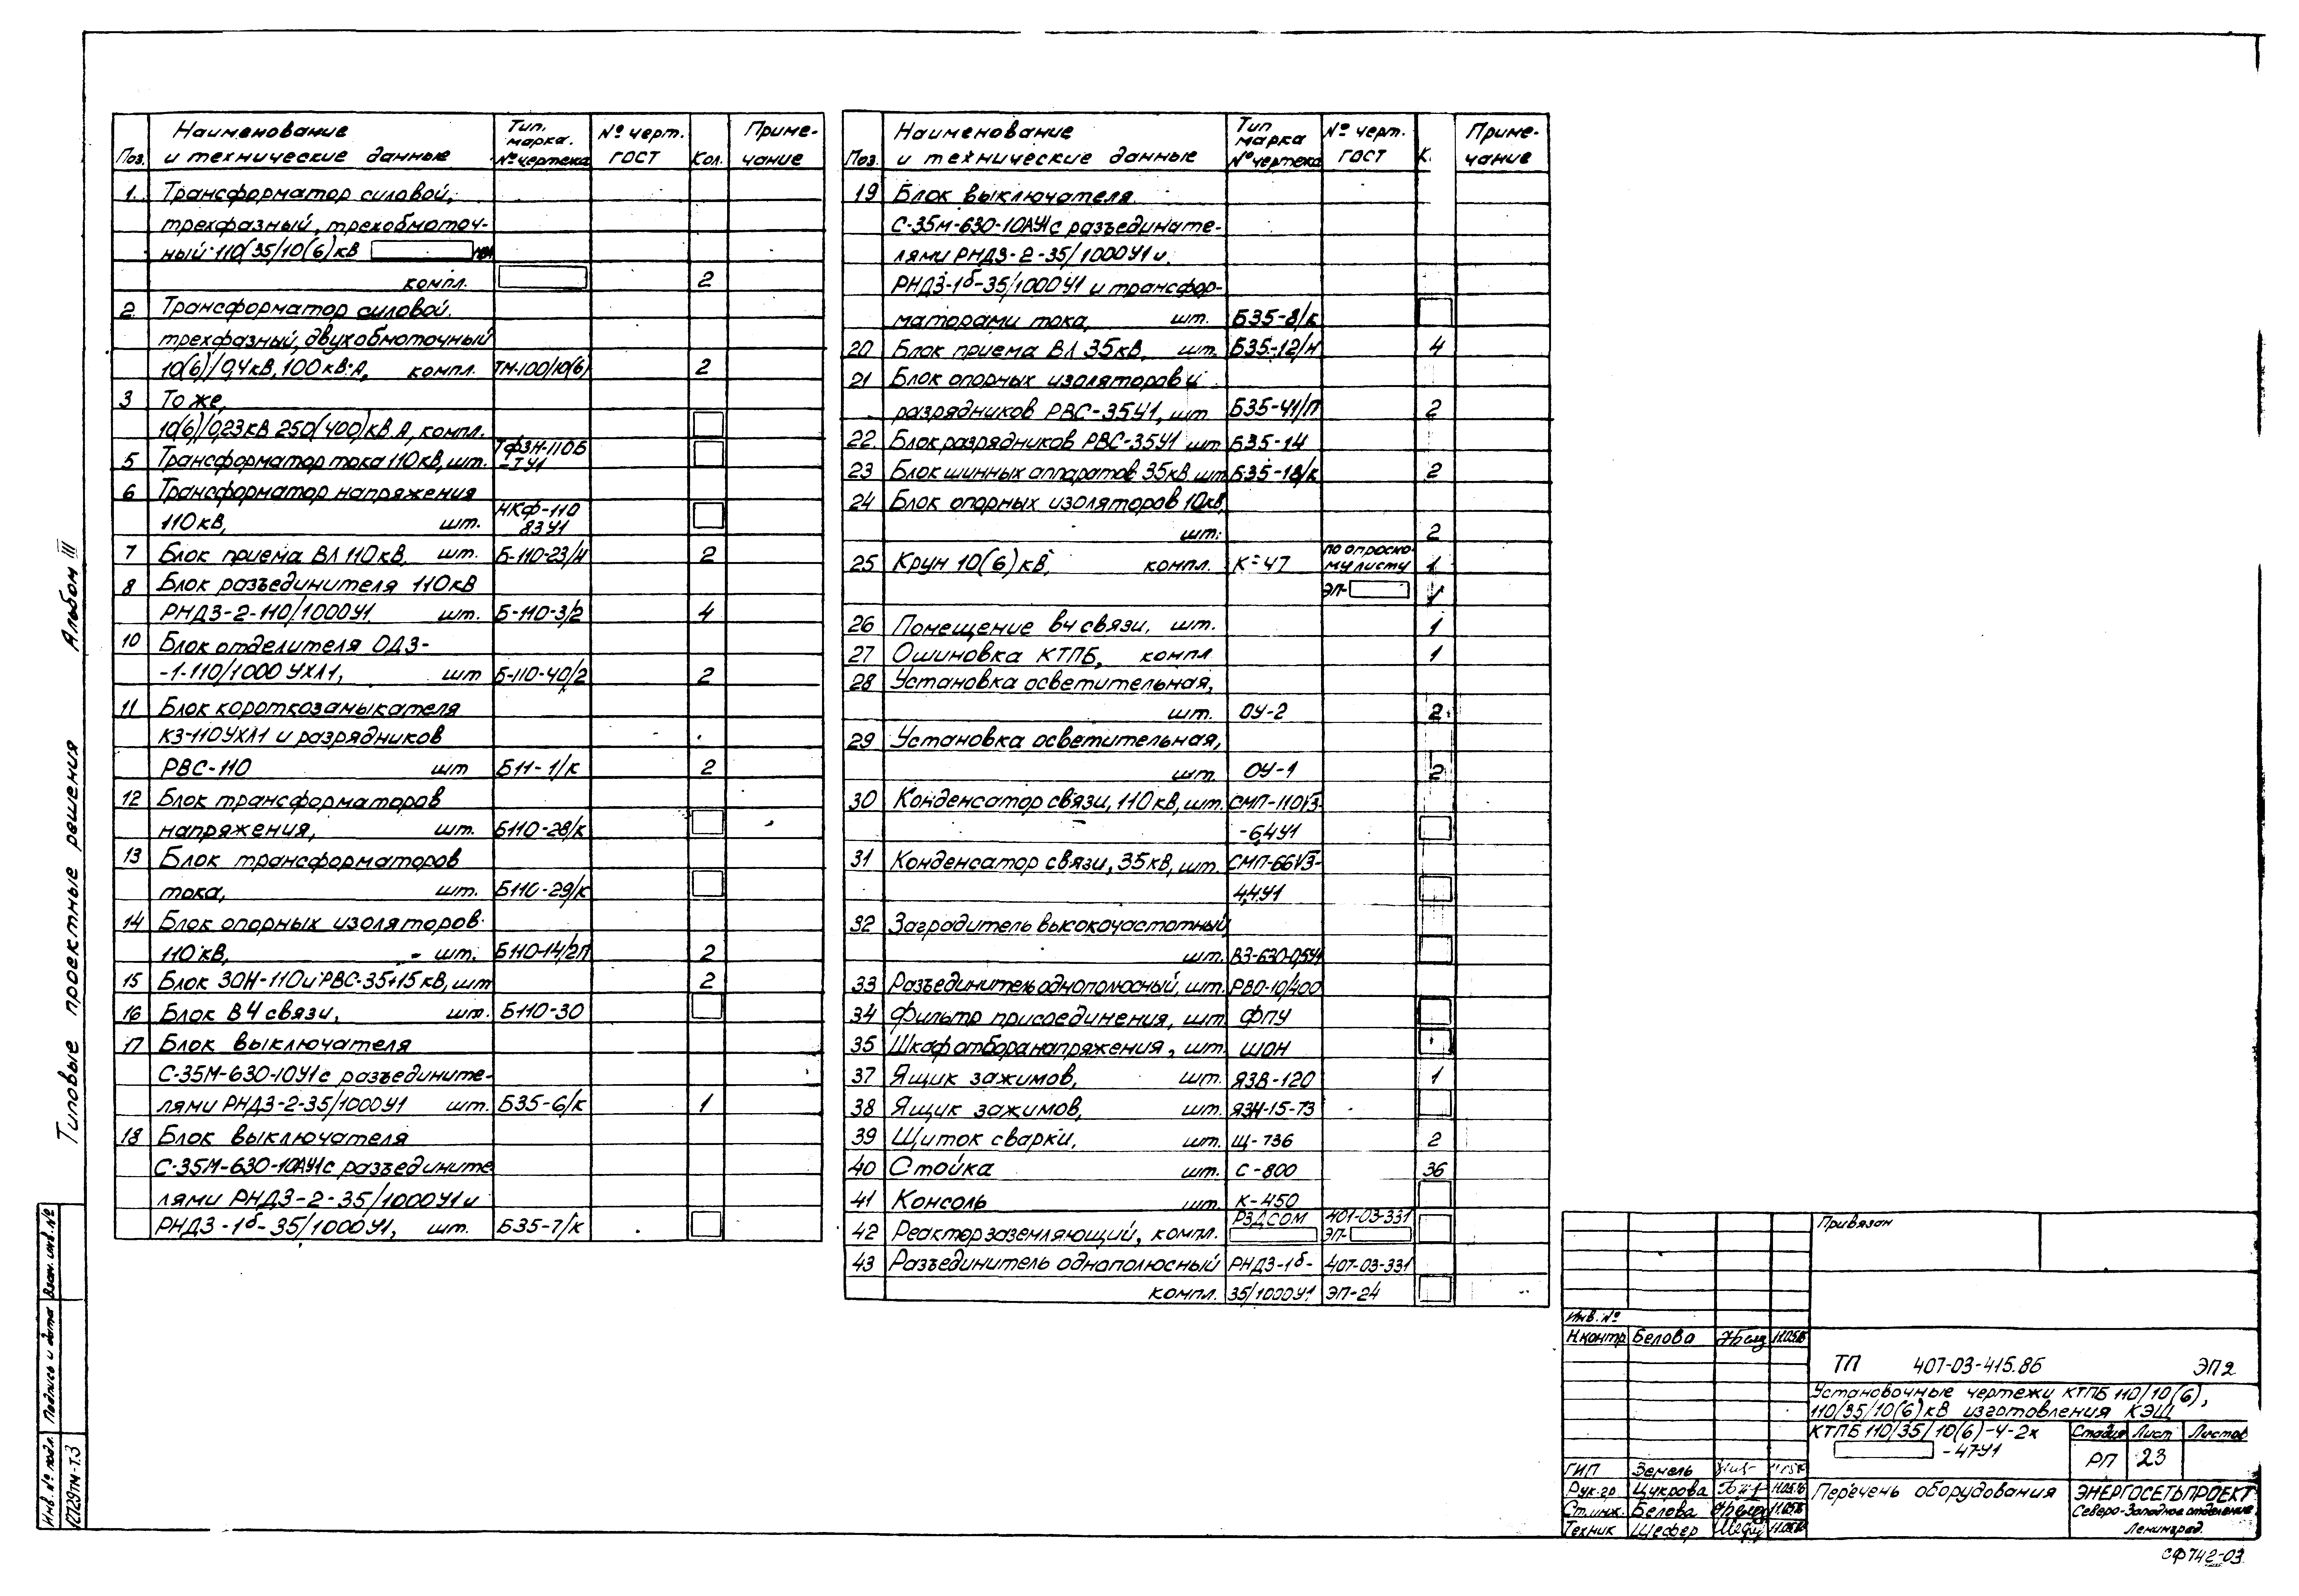 Наименование и технические данные
Поз.
Тип. марка. № чертежа
№ черт. ГОСТ
Кол.
Примечание
1. Трансформатор силовой,
трехфазный, трехобмоточ-
ный 110/35/10(6)кВ
компл. 2
2 Трансформатор силовой.
трехфазный, двухобмоточный
10(6)/0,4кВ, 100 кВ·А, компл. ТМ-100/10(6) 2
3 То же,
10(6)/0,23кВ 250(400)кВ.А, компл.
5 Трансформатор тока 110кВ, шт. ТФЗН-110Б -ТУ1
6 Трансформатор напряжения
110кВ, шт. НКФ-110 83У1
7 Блок приема ВЛ 110кВ, шт. Б-110-23/Н 2
8 Блок разъединителя 110кВ
РНДЗ-2-110/1000У1 шт. Б-110-3/2 4
10 Блок отделителя ОДЗ-
-1-110/1000 УХЛ1, шт Б-110-40/2 2
11 Блок короткозамыкателя
КЗ-110УХЛ1 и разрядников
РВС-110 шт Б11-1/К 2
12 Блок трансформаторов
напряжения, шт. Б110-28/К
13 Блок трансформаторов
тока, шт. Б110-29/К
14 Блок опорных изоляторов
110кВ, шт. Б110-14/2П 2
15 Блок ЗОН-110 и РВС-35+15кВ, шт 2
16 Блок ВЧ связи, шт. Б110-30
17 Блок выключателя
С-35М-630-10У1 с разъедините-
лями РНДЗ-2-35/1000У1 шт. Б35-6/К 1
18 Блок выключателя
С-35М-630-10АУ1 с разъедините
лями РНДЗ-2-35/1000У1 и
РНДЗ-1б-35/1000У1, шт. Б35-7/К
Наименование и технические данные
Поз.
Тип марка № чертежа
№ черт. ГОСТ
К.
Примечание
19 Блок выключателя
С-35М-630-10АУ1 с разъедините-
лями РНДЗ-2-35/1000У1 и.
РНДЗ-1б-35/1000У1 и трансфор-
маторами тока, шт. Б35-8/К
20 Блок приема ВЛ 35кВ, шт. Б35-12/Н 4
21 Блок опорных изоляторов и
разрядников РВС-35У1, шт. Б35-41/П 2
22. Блок разрядников РВС-35У1 шт. Б35-14
23 Блок шинных аппаратов 35кВ шт Б35-18/К 2
24 Блок опорных изоляторов 10кВ,
шт. 2
25 Крун 10(6)кВ, компл. К-47 по опросно- му листу 1
ЭП-
26 Помещение вч связи, шт. 1
27 Ошиновка КТПБ, компл 1
28 Установка осветительная,
шт. ОУ-2 2
29 Установка осветительная,
шт. ОУ-1 2
30 Конденсатор связи, 110 кВ, шт. СМП-110√3-
-6,4У1
31 Конденсатор связи, 35кВ, шт. СМП-66√3-
4,4У1
32 Заградитель высокочастотный
шт. ВЗ-630-0,5У1
33 Разъединитель однополюсный, шт. РВО-10/400
34 Фильтр присоединения, шт ФПУ
35 Шкаф отбора напряжения, шт. ШОН
37 Ящик зажимов, шт. ЯЗВ-120 1
38 Ящик зажимов, шт. ЯЗН-15-73
39 Щиток сварки, шт. Щ-736 2
40 Стойка шт. С-800 36
41 Консоль шт. К-450
42 Реактор заземляющий, компл. РЗДСОМ 401-03-331 ЭП-
43 Разъединитель однополюсный РНДЗ-1б- 407-03-331
компл. 35/1000У1 ЭП-24
Типовые проектные решения Альбом III
Взам. инв. №
Подпись и дата
Инв. № подл.
12129тм-Т.3
Привязан
Инв. №
Н.контр Белова
ТП 407-03-415.86 ЭП2
Установочные чертежи КТПБ 110/10(6),
110/35/10(6)кВ изготовления КЭЩ
КТПБ 110/35/10(6)-4-2х
-47У1
Стадия Лист Листов
РП 23
ГИП Земель
Рук.гр Цукрова
Ст.инж. Белова
Техник Шефер
Перечень оборудования
ЭНЕРГОСЕТЬПРОЕКТ
Северо-Западное отделение
Ленинград.
СФ742-03